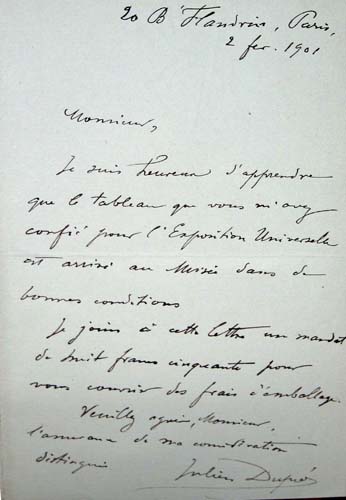 20 Bd Flandrin, Paris,
2 fev. 1901
Monsieur,
Je suis heureux d'apprendre
que le tableau que vous m'avez
confié pour l'Exposition Universelle
est arrivé au Musée dans de
bonnes conditions
Je joins à cette lettre un mandat
de huit francs cinquante pour
vous couvrir des frais d'emballage.
Veuillez agréer, Monsieur,
l'assurance de ma considération
distinguée
Julien Dupré